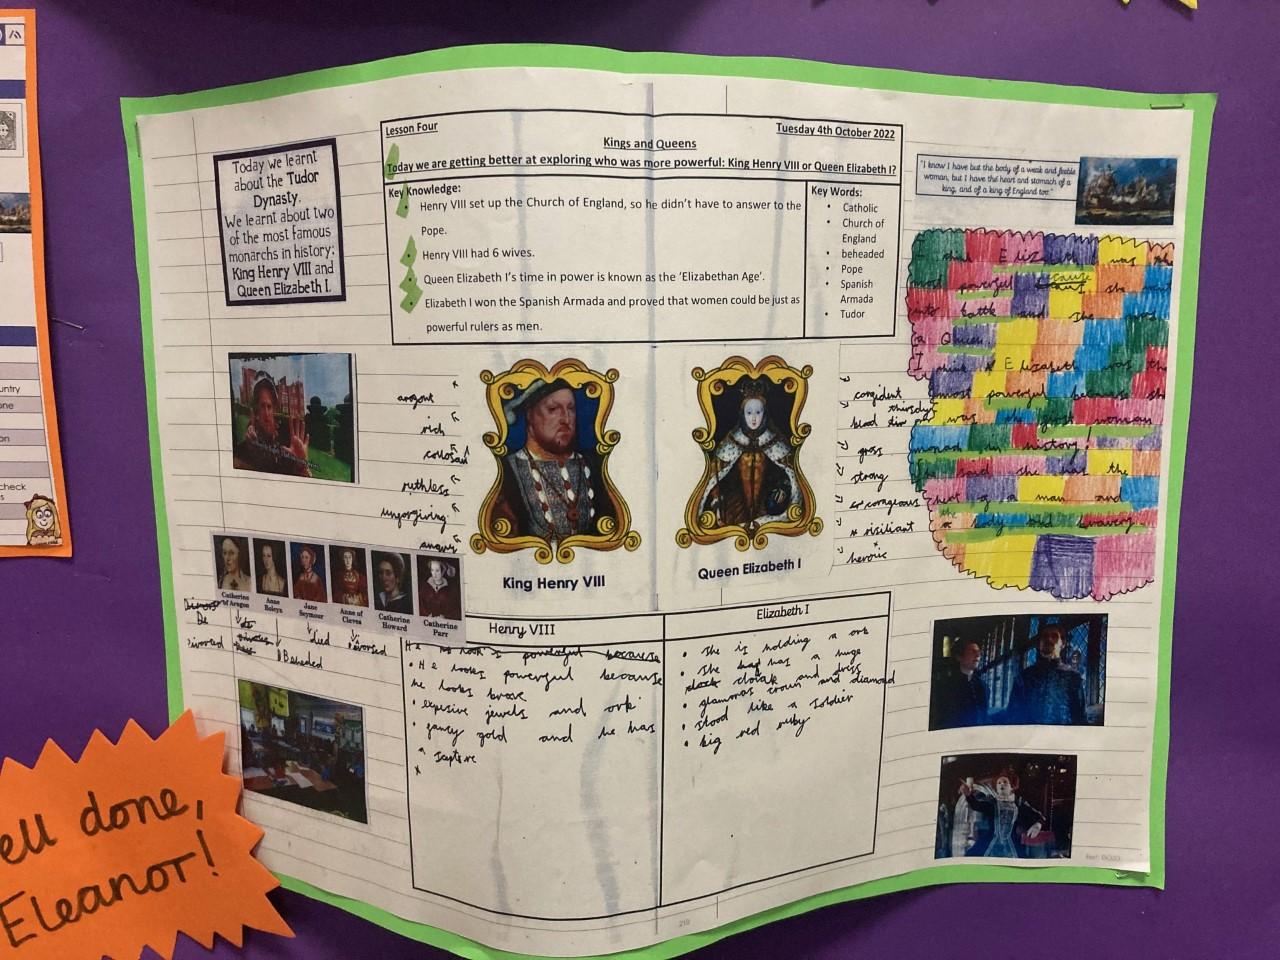 Lesson Four
Tuesday 4th October 2022
Kings and Queens
Today we are getting better at exploring who was more powerful: King Henry VIII or Queen Elizabeth I?
Key Knowledge:
Henry VIII set up the Church of England, so he didn't have to answer to the
Pope.
Henry VIII had 6 wives.
Queen Elizabeth I's time in power is known as the 'Elizabethan Age'.
Elizabeth I won the Spanish Armada and proved that women could be just as
powerful rulers as men.
Key Words:
Catholic
Church of
England
beheaded
Pope
Spanish
Armada
Tudor
Today we learnt
about the Tudor
Dynasty.
We learnt about two
of the most famous
monarchs in history:
King Henry VIII and
Queen Elizabeth I.
"I know I have but the body of a weak and feeble
woman, but I have the heart and stomach of a
king, and of a king of England too."
Elizabeth was the
most powerful cause she went
into battle and she was
a Queen.
I think Elizabeth was the
most powerful because she
was the first woman
monarch in history!
said she has the
of a man and
a body and bravery
arogont
rich
colosall
ruthless
unforgiving
angry
King Henry VIII
Queen Elizabeth I
congident
blood thirsty
strong
corageous
risiliant
heroic
Catherine
of Aragon
Anne
Boleyn
Jane
Seymour
Anne of
Cleves
Catherine
Howard
Catherine
Parr
Divorsed
Beheaded
died
Divorsed
Henry VIII
He look powerful because
He looks powerful because
he looks brave
expesive jewels and ork
fancy gold and he has
a
Elizabeth I
She is holding a ork
She has a huge
cloak and dress
glamoras crown and diamond
stood like a soldier
big red ruby
219
ell done,
Eleanor!
untry
one
on
check
s